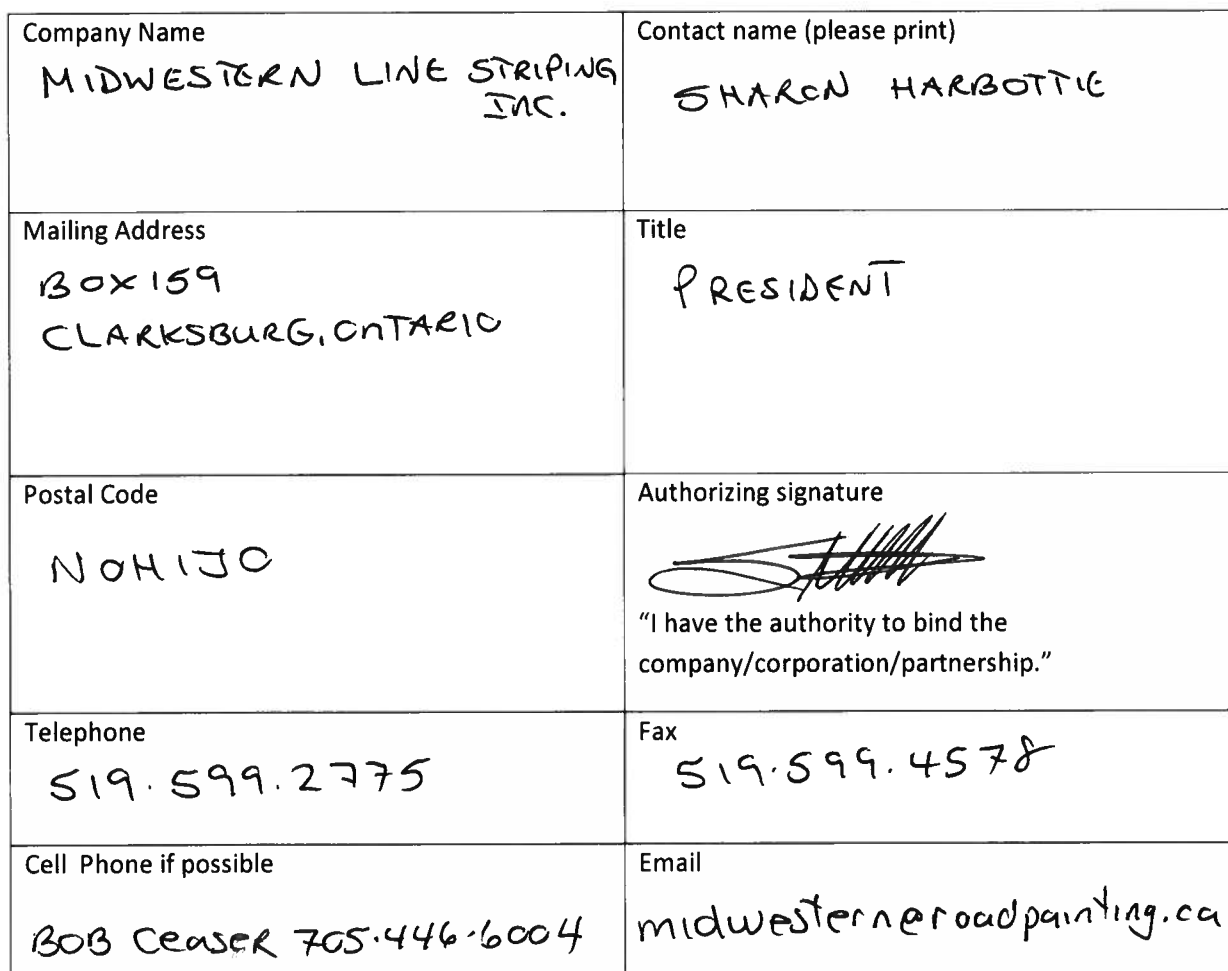 Company Name
MIDWESTERN LINE STRIPING
INC.
Contact name (please print)
SHARON HARBOTTIE
Mailing Address
BOX 159
CLARKSBURG, ONTARIO
Title
PRESIDENT
Postal Code
N0H1J0
Authorizing signature
"I have the authority to bind the
company/corporation/partnership."
Telephone
519.599.2775
Fax
519.599.4578
Cell Phone if possible
BOB CEASER 705.446.6004
Email
midwestern@roadpainting.ca